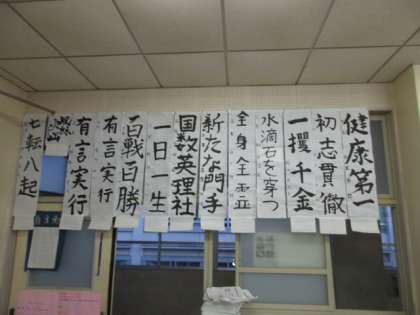 健康第一
初志貫徹
一攫千金
水滴石を穿つ
全身全霊
新たな門手
国数英理社
一日一生
百戦百勝
有言実行
有言実行
七転八起